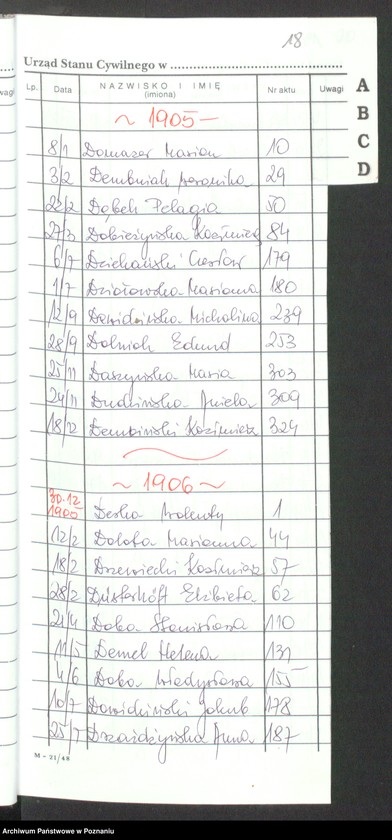 18
Urząd Stanu Cywilnego w
Lp. Data NAZWISKO I IMIĘ (imiona) Nr aktu Uwagi
A
B
C
D
~ 1905 ~
8/1 Domazer Marian 10
3/2 Dembniak Weronika 29
22/2 Dąbek Pelagia 50
27/3 Dobieżyńska Kazimiera 84
6/7 Dziekański Czesław 179
1/7 Dziatowska Marianna 180
12/9 Dawidzińska Michalina 239
28/9 Dolniak Edmund 253
25/11 Daszyńska Maria 303
24/11 Dudzińska Aniela 309
18/12 Dembiński Kazimierz 324
~ 1906 ~
30.12 1905 Deska Walenty 1
12/2 Dolata Marianna 44
18/2 Drzewiecki Kazimierz 57
28/2 Düsterhöft Elżbieta 62
21/4 Doba Stanisława 110
11/5 Demel Helena 131
4/6 Doba Władysława 155
10/7 Dawidziński Jakub 178
25/7 Drzażdżyńska Anna 187
M - 21/48
Archiwum Państwowe w Poznaniu